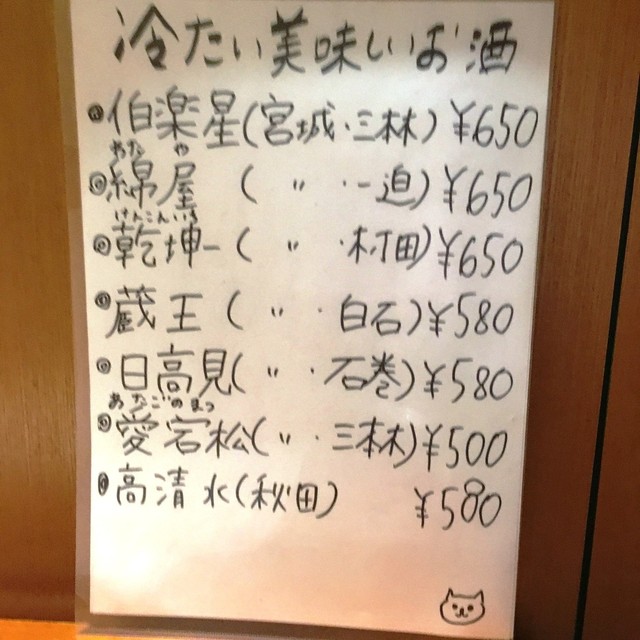 冷たい美味しいお酒
◎伯楽星(宮城・三林)¥650
わた や
◎綿屋 ( 〃 ・一迫)¥650
けんこんいち
◎乾坤一( 〃 ・村田)¥650
◎蔵王( 〃 ・白石)¥580
◎日高見( 〃 ・石巻)¥580
あたごのまつ
◎愛宕松( 〃 ・三本木)¥500
◎高清水(秋田) ¥580